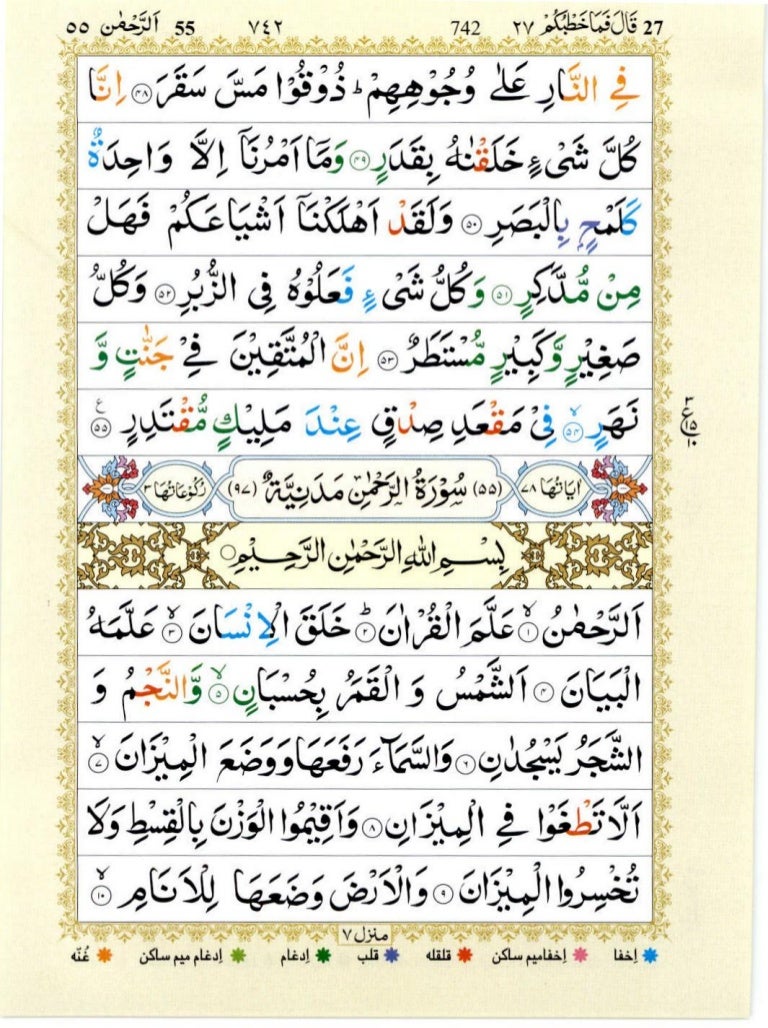 27 قَالَ فَمَا خَطْبُكُمْ ٢٧ 742 ٧٤٢ 55 اَلرَّحْمٰن ٥٥
فِي النَّارِ عَلٰى وُجُوْهِهِمْ ؕ ذُوْقُوْا مَسَّ سَقَرَ ﴿۴۸﴾ اِنَّا
كُلَّ شَىْءٍ خَلَقْنٰهُ بِقَدَرٍ ﴿۴۹﴾ وَمَاۤ اَمْرُنَاۤ اِلَّا وَاحِدَةٌ
كَلَمْحٍۭ بِالْبَصَرِ ﴿۵۰﴾ وَلَقَدْ اَهْلَكْنَاۤ اَشْيَاعَكُمْ فَهَلْ
مِنْ مُّدَّكِرٍ ﴿۵۱﴾ وَكُلُّ شَىْءٍ فَعَلُوْهُ فِى الزُّبُرِ ﴿۵۲﴾ وَكُلُّ
صَغِيْرٍ وَّكَبِيْرٍ مُّسْتَطَرٌ ﴿۵۳﴾ اِنَّ الْمُتَّقِيْنَ فِىْ جَنّٰتٍ وَّ
نَهَرٍ ۙ﴿۵۴﴾ فِىْ مَقْعَدِ صِدْقٍ عِنْدَ مَلِيْكٍ مُّقْتَدِرٍ ﴿۵۵﴾ ع
٣ ع ١٥ ١٠
اٰيَاتُهَا ٧٨ (٥٥) سُوْرَةُ الرَّحْمٰنِ مَدَنِيَّةٌ (٩٧) رُكُوْعَاتُهَا ٣
بِسْمِ اللّٰهِ الرَّحْمٰنِ الرَّحِيْمِ
اَلرَّحْمٰنُ ۙ﴿۱﴾ عَلَّمَ الْقُرْاٰنَ ؕ﴿۲﴾ خَلَقَ الْاِنْسَانَ ۙ﴿۳﴾ عَلَّمَهُ
الْبَيَانَ ﴿۴﴾ اَلشَّمْسُ وَ الْقَمَرُ بِحُسْبَانٍ ۙ﴿۵﴾ وَّالنَّجْمُ وَ
الشَّجَرُ يَسْجُدٰنِ ﴿۶﴾ وَالسَّمَآءَ رَفَعَهَا وَوَضَعَ الْمِيْزَانَ ۙ﴿۷﴾
اَلَّا تَطْغَوْا فِى الْمِيْزَانِ ﴿۸﴾ وَاَقِيْمُوا الْوَزْنَ بِالْقِسْطِ وَلَا
تُخْسِرُوا الْمِيْزَانَ ﴿۹﴾ وَالْاَرْضَ وَضَعَهَا لِلْاَنَامِ ۙ﴿۱۰﴾
منزل ٧
اِخفا اِخفامیم ساکن قلقله قلب اِدغام اِدغام میم ساکن غُنّه